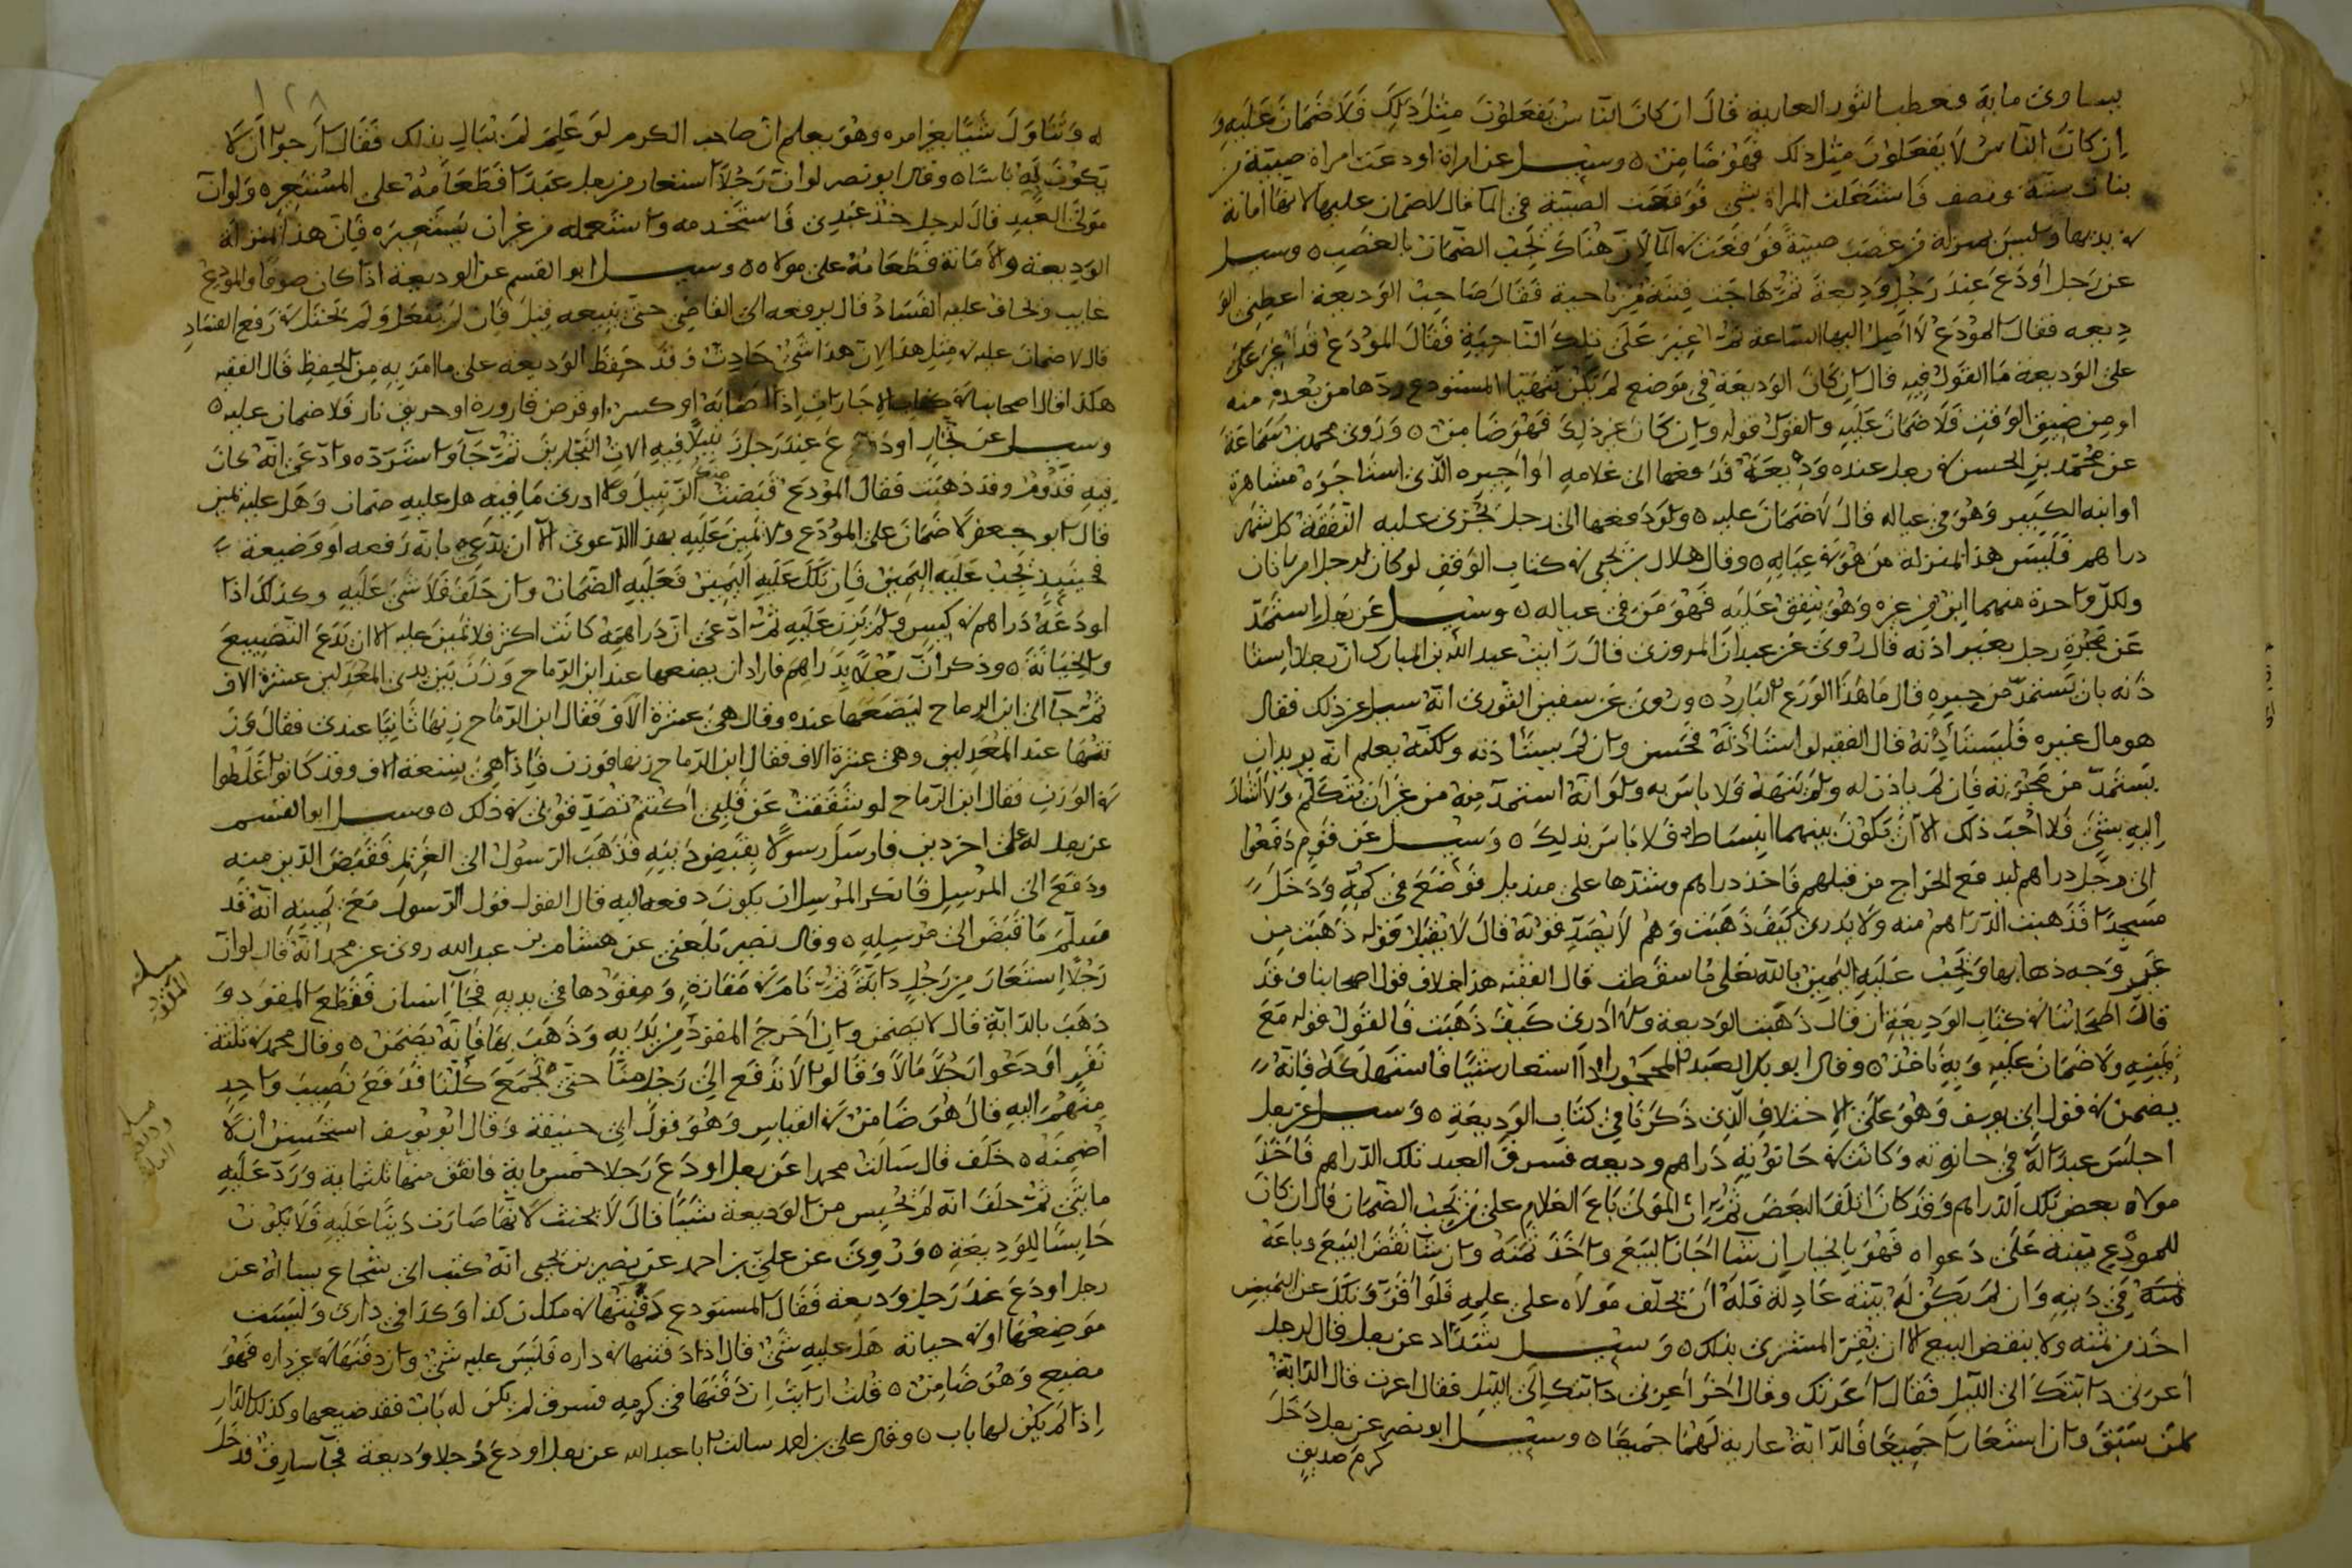 يساوى مايه فعطب الثور العارية قال ان كان الناس يفعلون مثل ذلك فلا ضمان عليه و
ان كان الناس لا يفعلون مثل ذلك فهو ضامن ٥ وسيل عن امراة اودعت امراة صبية
بنات سنة ونصف فاشتغلت المراة بشى فوقعت الصبية فى الما قال لا ضمان عليها لانها امانة
فى يديها وليس بمنزلة من غصب صبية فوقعت فى الما لان هناك يجب الضمان بالغصب ٥ وسيل
عن رجل اودع عند رجل وديعة ثم هاجت فتنة من ناحية فقال صاحب الوديعة اعطنى الو
ديعه فقال المودع لا اصل اليها الساعة ثم اغير على تلك الناحية فقال المودع قد اغير على
على الوديعة ما القول فيه قال ان كان الوديعة فى موضع لم يكن تتهيا المستودع ردها من بعده منه
او من ضيق الوقت فلا ضمان عليه والقول قوله وان كان غير ذلك فهو ضامن ٥ وروى محمد بن سماعة
عن محمد بن الحسن فى رجل عنده وديعة قد دفعها الى غلامه او اجيره الذى استاجره مشاهرة
او ابنه الكبير وهو فى عياله قال لا ضمان عليه ٥ ولو دفعها الى رجل يجرى عليه النفقة كل شهر
دراهم فليس هذا بمنزلة من هو فى عياله ٥ وقال هلال بن يحيى فى كتاب الوقف لو كان لرجل امراتان
ولكل واحدة منهما ابن من غيره وهو ينفق عليه فهو من فى عياله ٥ وسيل عن رجل استمد
عن محبرة رجل بغير اذنه قال روى عن عبدان المروزى قال رايت عبد الله بن المبارك ان رجلا استا
ذنه بان يستمد من حبره قال ما هذا الورع البارد ٥ وروى عن سفين الثورى انه سيل عن ذلك فقال
هو مال غيره فليستأذنه قال الفقيه لو استأذنه فحسن وان لم يستأذنه ولكنه يعلم انه يريد ان
يستمد من محبرته فان لم ياذن له ولم ينهه فلا باس به ولو انه استمد منه من غير ان يتكلم ولا اشار
اليه بشى فلا احب ذلك الا ان يكون بينهما انبساط فلا باس بذلك ٥ وسيل عن قوم دفعوا
الى رجل دراهم ليدفع الخراج من قبلهم فاخذ دراهم وشدها على منديل فوضع فى كمه ودخل
مسجدا فذهبت الدراهم منه ولا يدرى كيف ذهبت وهم لا يصدقونه قال لا يقبل قوله ذهبت من
غير وجه ذهابها ويجب عليه اليمين بالله تعلى ما سقطت قال الفقيه هذا خلاف قول اصحابنا وقد
قال اصحابنا فى كتاب الوديعة ان قال ذهبت الوديعة ولا ادرى كيف ذهبت فالقول قوله مع
يمينه ولا ضمان عليه وبه ناخذ ٥ وقال ابو بكر العبد المحجور اذا استعار شيئا فاستهلكه فانه
يضمن فى قول ابى يوسف وهو على الاختلاف الذى ذكرنا فى كتاب الوديعة ٥ وسيل عن رجل
اجلس عبدا له فى حانوته وكانت فى حانوته دراهم وديعه فسرق العبد تلك الدراهم فاخذ
مولاه بعض تلك الدراهم وقد كان اتلف البعض ثم ان المولى باع الغلام على من يجب الضمان قال ان كان
للمودع بينة على دعواه فهو بالخيار ان شا اجاز البيع واخذ ثمنه وان شا نقض البيع وباعه
ثمنه فى دينه وان لم يكن له بينة عادلة فله ان يحلف مولاه على علمه فلو اقر ونكل عن اليمين
اخذ من ثمنه ولا ينقض البيع الا ان يقر المشترى بذلك ٥ وسيل شداد عن رجل قال لرجل
اعرنى دابتك الى الليل فقال اعرتك وقال اخر اعرنى دابتك الى الليل فقال اعرت قال الدابة
لمن سبق وان استعارا جميعا فالدابة عارية لهما جميعا ٥ وسيل ابو نصر عن رجل دخل
كرم صديق
١٢٨
له وتناول شيئا بغير امره وهو يعلم ان صاحب الكرم لو علم لم يبال بذلك فقال ارجوا ان لا
يكون به باسا ٥ وقال ابو نصر لو ان رجلا استعار من رجل عبدا فطعامه على المستعير ٥ ولو ان
مولى العبد قال لرجل خذ عبدى فاستخدمه واستعمله من غير ان يستعيره فان هذا بمنزلة
الوديعة والامانة فطعامه على مولاه ٥ وسيل ابو القسم عن الوديعة اذا كان صوفا والمودع
غايب ويخاف عليه الفساد قال يرفعه الى القاضى حتى يبيعه قيل فان لم يفعل ولم يحتل فى رفع الفساد
قال لا ضمان عليه فى مثل هذا لان هذا شى حادث وقد حفظ الوديعه على ما امر به من الحفظ قال الفقيه
هكذا قال اصحابنا فى كتاب الاجارات اذا اصابه او كسره او قرض فارورة او حريق نار فلا ضمان عليه ٥
وسيل عن نجار اودع عند رجل زنبيلا فيه الات النجارين ثم جا واسترده وادعى انه كان
فيه قدوم وقد ذهبت فقال المودع قبضت منك الزنبيل ولا ادرى ما فيه هل عليه ضمان وهل عليه يمين
قال ابو جعفر لا ضمان على المودع ولا يمين عليه بهذا الدعوى الا ان يدعى بانه رفعه او وضيعة
فحينيذ يجب عليه اليمين فان نكل عليه اليمين فعليه الضمان وان حلف فلا شى عليه وكذلك اذا
اودعه دراهم فى كيس ولم يزن عليه ثم ادعى ان دراهمه كانت اكثر فلا يمين عليه الا ان يدع التضييع
والخيانة ٥ وذكر ان رجلا بدراهم فاراد ان يضعها عند ابن الرماح وزن بين يدى المعدلين عشرة الاف
ثم جا الى ابن الرماح ليضعها عنده وقال هى عشرة الاف فقال ابن الرماح زنها ثانيا عندى فقال وز
نتها عند المعدلين وهى عشرة الاف فقال ابن الرماح زنها فوزن فاذا هى تسعة الاف وقد كانوا غلطوا
فى الوزن فقال ابن الرماح لو شققت عن قلبى اكنتم تصدقونى فى ذلك ٥ وسيل ابو القسم
عن رجل له على اخر دين فارسل رسولا بقبض دينه فذهب الرسول الى الغريم فقبض الدين منه
ودفع الى المرسل فانكر المرسل ان يكون دفعه اليه قال القول قول الرسول مع يمينه انه قد
سلم ما قبض الى مرسله ٥ وقال نصير بلغنى عن هشام بن عبد الله روى عن محمد انه قال لو ان
رجلا استعار من رجل دابة ثم نام فى مفازة ومقودها فى يديه فجا انسان فقطع المقود و
ذهب بالدابة قال لا يضمن وان اخرج المقود من يديه وذهب بها فانه يضمن ٥ وقال محمد فى ثلثة
نفر اودعوا رجلا مالا وقالوا لا تدفع الى رجل منا حتى نجمع كلنا فدفع نصيب واحد
منهم اليه قال هو ضامن فى القياس وهو قول ابى حنيفة وقال ابو يوسف استحسن ان لا
اضمنه ٥ خلف قال سالت محمدا عن رجل اودع رجلا خمس ماية فانفق منها ثلثماية ورد عليه
مايتى ثم حلف انه لم يحبس من الوديعة شيئا قال لا يحنث لانها صارت دينا عليه فلا يكون
حابسا للوديعة ٥ وروى عن على بن احمد عن نصير بن يحيى انه كتب الى شجاع يساله عن
رجل اودع عند رجل وديعة فقال المستودع دفنتها فى مكان كذا وكذا فى دارى ونسيت
موضعها او فى حياته هل عليه شى قال اذا دفنتها فى داره فليس عليه شى وان دفنها فى غير داره فهو
مضيع وهو ضامن ٥ قلت ارايت ان دفنها فى كرمه فسرق لم يكن له باب فقد ضيعها وكذلك الدار
اذا لم يكن لها باب ٥ وقال على بن احمد سالت ابا عبد الله عن رجل اودع رجلا وديعة فجا سارق قد دخل
مسلة